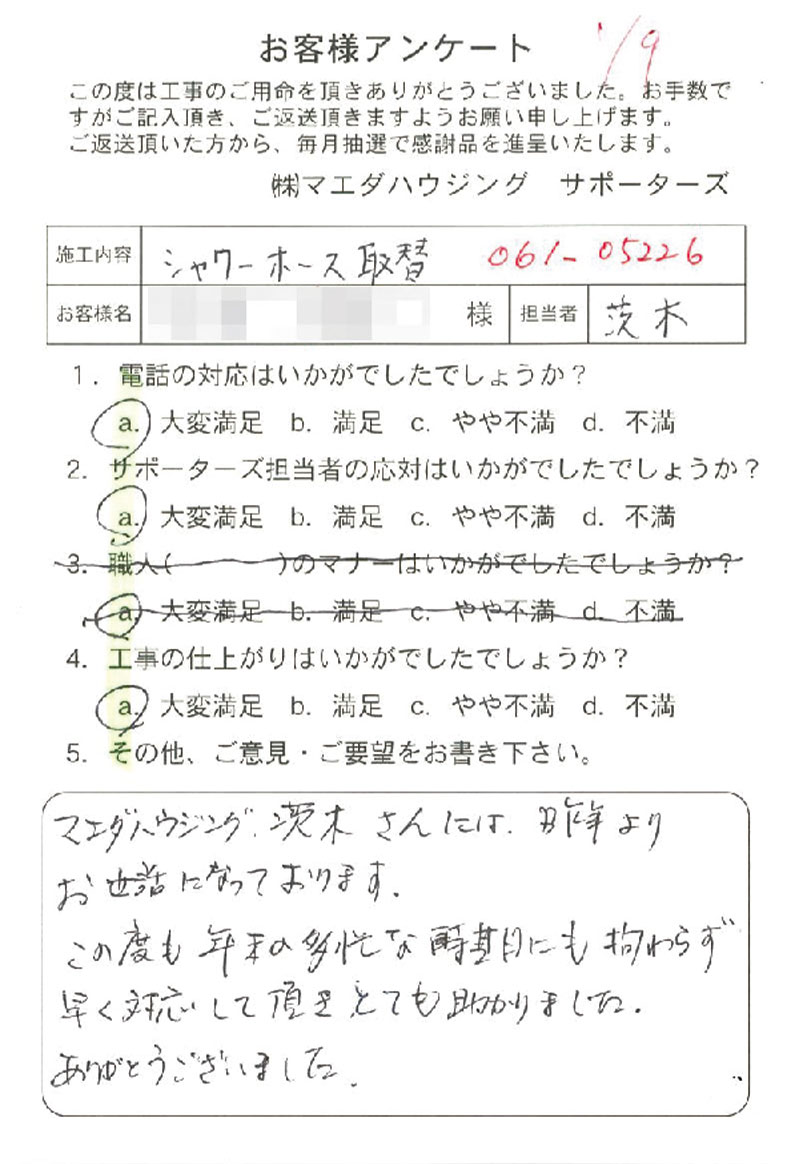 お客様アンケート 1/9
この度は工事のご用命を頂きありがとうございました。お手数で
すがご記入頂き、ご返送頂きますようお願い申し上げます。
ご返送頂いた方から、毎月抽選で感謝品を進呈いたします。
㈱マエダハウジング サポーターズ
施工内容 シャワーホース取替 061-05226
お客様名 様 担当者 茨木
1. 電話の対応はいかがでしたでしょうか？
a. 大変満足 b. 満足 c. やや不満 d. 不満
2. サポーターズ担当者の応対はいかがでしたでしょうか？
a. 大変満足 b. 満足 c. やや不満 d. 不満
3. 職人( )のマナーはいかがでしたでしょうか？
a. 大変満足 b. 満足 c. やや不満 d. 不満
4. 工事の仕上がりはいかがでしたでしょうか？
a. 大変満足 b. 満足 c. やや不満 d. 不満
5. その他、ご意見・ご要望をお書き下さい。
マエダハウジング、茨木さんには、昨年より
お世話になっております。
この度も年末の多忙な時期にも拘わらず
早く対応して頂きとても助かりました。
ありがとうございました。